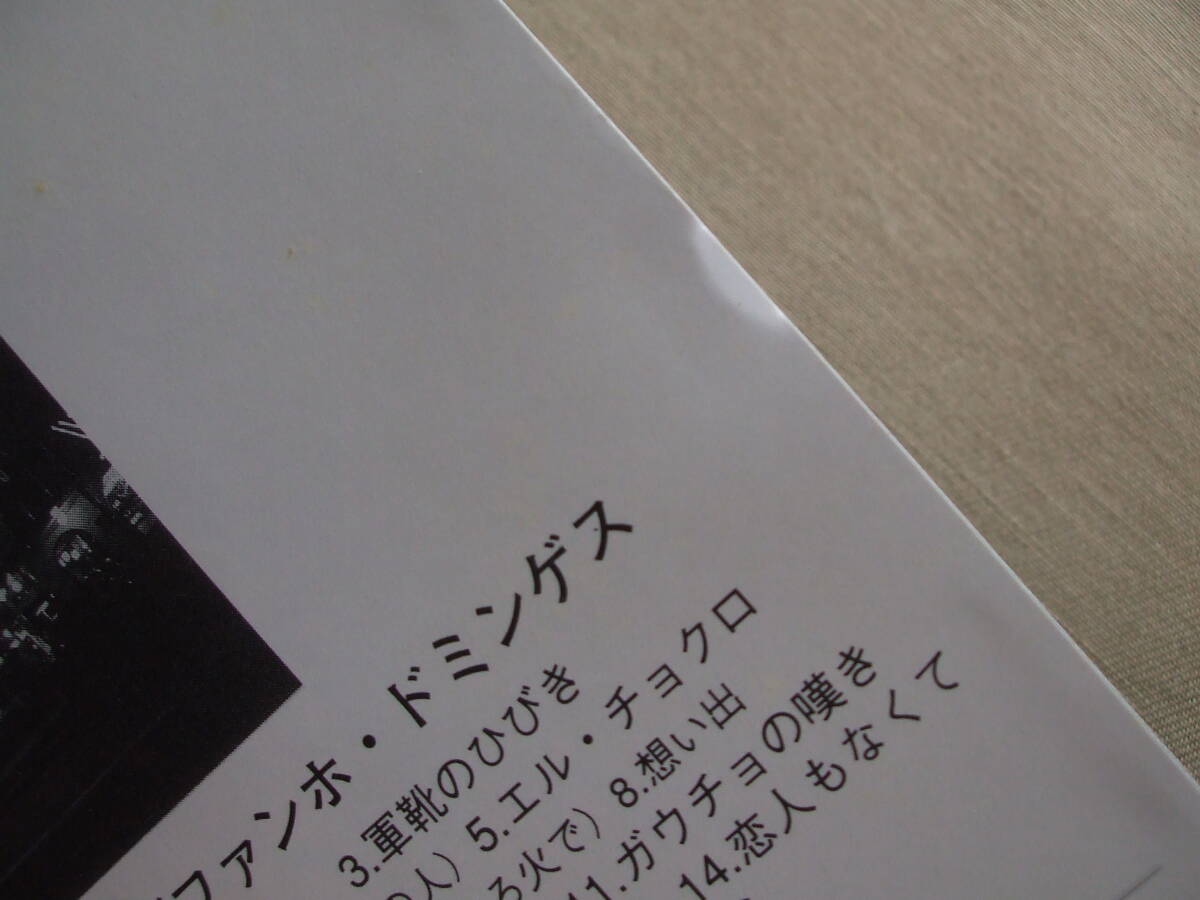 ファンホ・ドミンゲス
3.軍靴のひびき
人） 5.エル・チョクロ
ろ火で） 8.想い出
11.ガウチョの嘆き
14.恋人もなくて